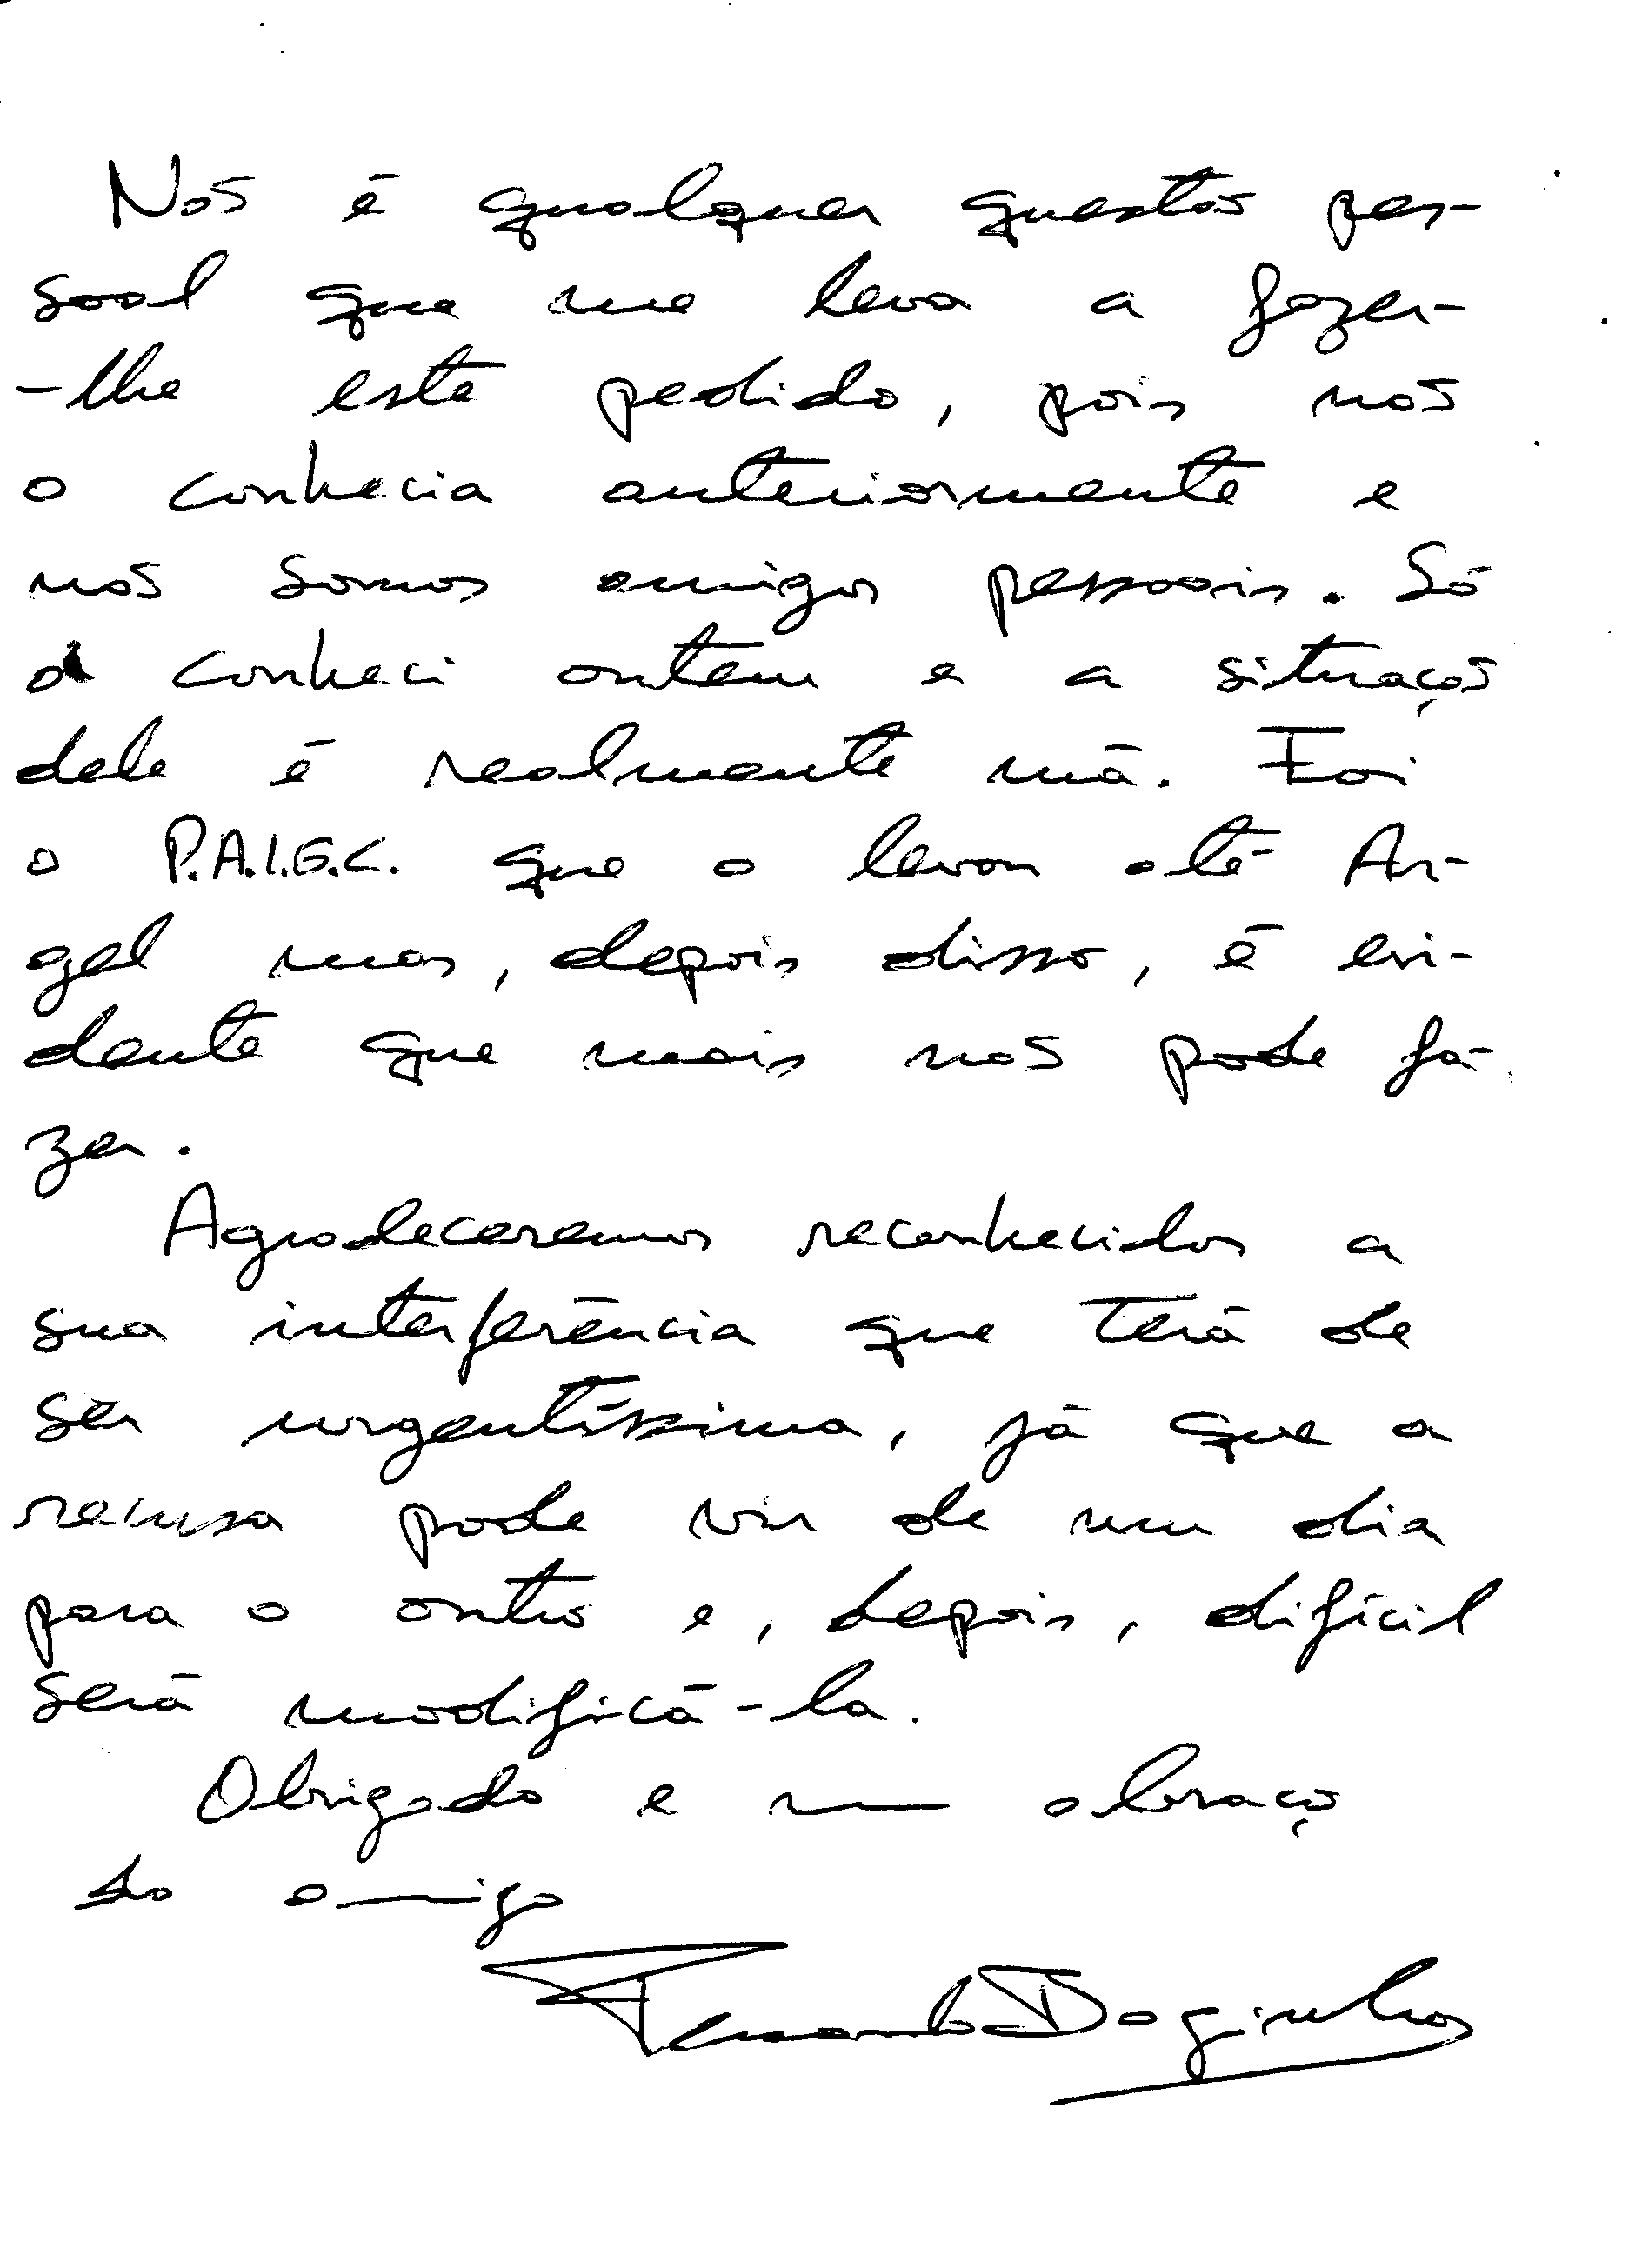 Não é qualquer questão pes-
soal que me leva a fazer-
-lhe este pedido, pois não
o conhecia anteriormente e
não somos amigos pessoais. Só
o conheci ontem e a situação
dele é realmente má. Foi
o P.A.I.G.C. que o levou até Ar-
gel mas, depois disso, é evi-
dente que mais não pode fa-
zer.
Agradeceremos reconhecidos a
sua interferência que terá de
ser urgentíssima, já que a
recusa pode vir de um dia
para o outro e, depois, difícil
será modificá-la.
Obrigado e um abraço
do amigo
Fernando Baginha